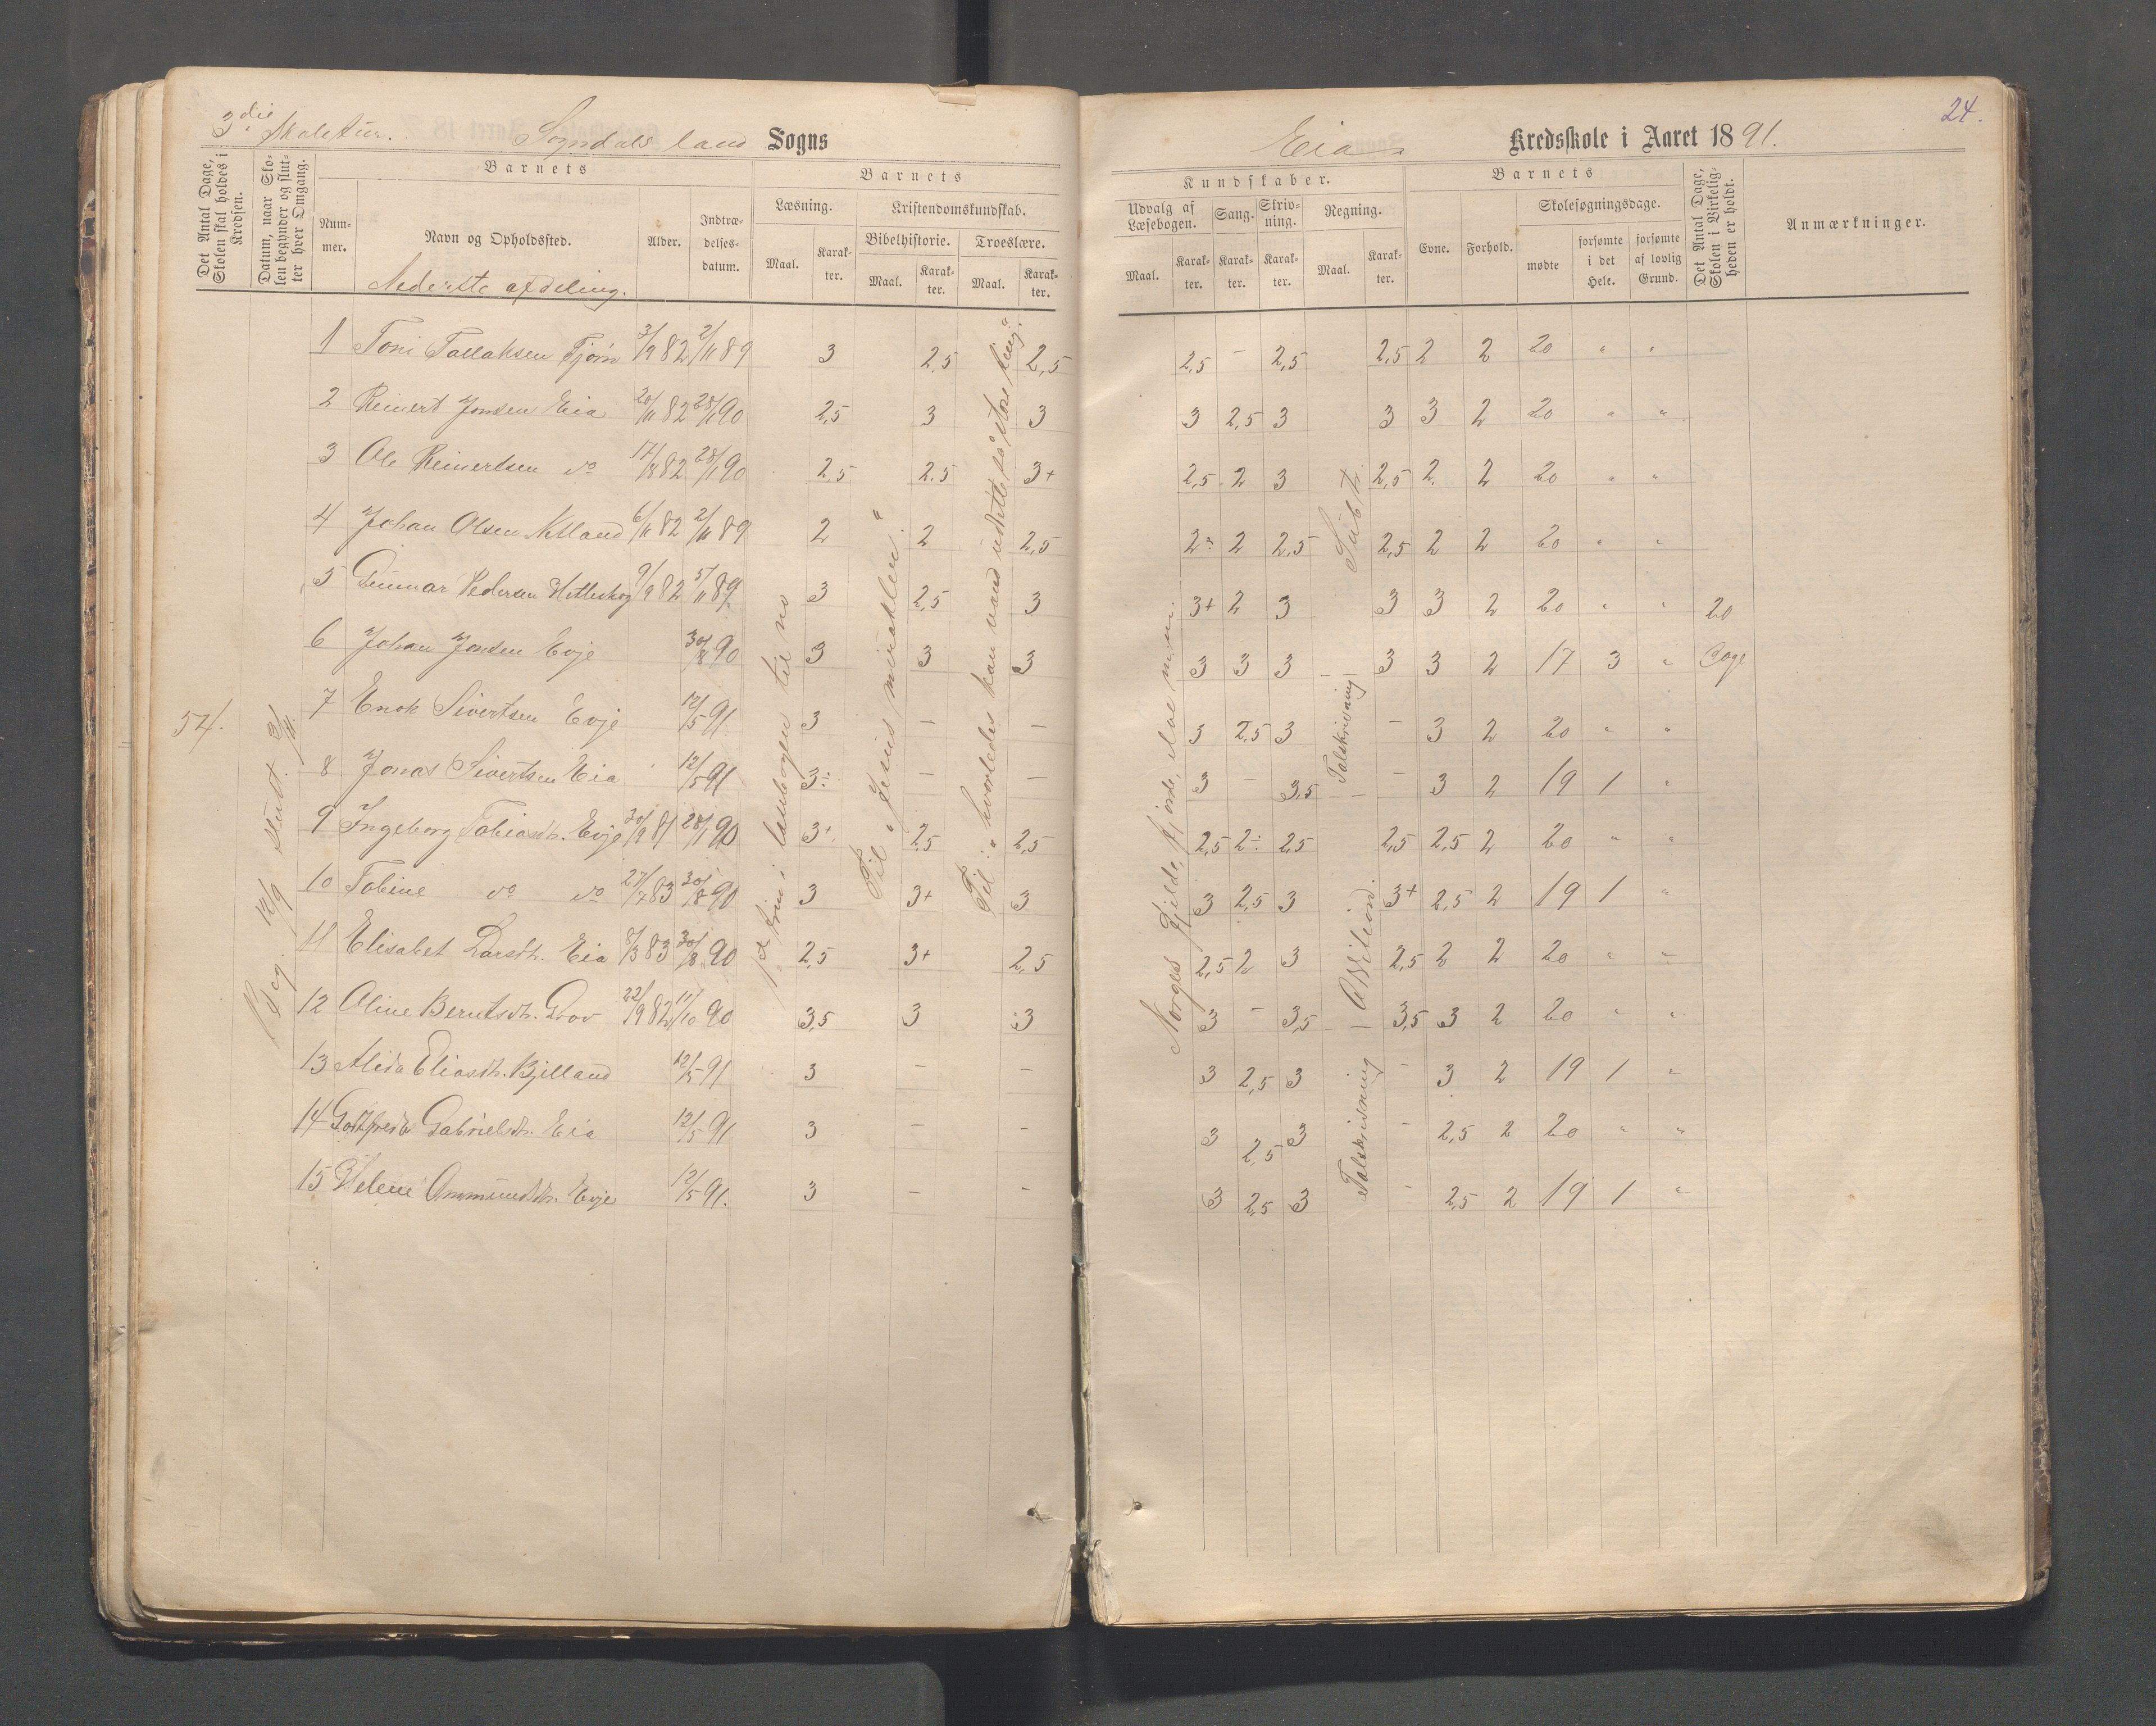 3die Skoletur. Sogndals land Sogns
Det Antal Dage, Skolen skal holdes i Kredsen.
Datum, naar Skolen begynder og slutter hver Omgang.
Barnets
Nummer.
Navn og Opholdssted.
Alder.
Indtrædelsesdatum.
Barnets
Læsning.
Maal.
Karakter.
Kristendomskundskab.
Bibelhistorie.
Maal.
Karakter.
Troeslære.
Maal.
Karakter.
Nederste afdeling.
1 Toni Tallaksen Tjørn 3/9 82 2/11 89 3 2,5 2,5
2 Reinert Jonsen Eia 20/11 82 28/1 90 2,5 3 3
3 Ole Reinertsen do 17/8 82 28/1 90 2,5 2,5 3+
4 Johan Olsen 6/11 82 2/11 89 2 2 2,5
5 Gunnar Pedersen 9/9 82 5/11 89 3 2,5 3
6 Johan Jonsen Evje 30/8 90 3 3 3
7 Enok Sivertsen Evje 12/5 91 3 – –
8 Jonas Sivertsen Eia 12/5 91 3÷ – –
9 Ingeborg Tobiasdt. Evje 30/9 81 28/1 90 3+ 2,5 2,5
10 Tobine do do 27/7 83 30/8 90 3 3+ 3
11 Elisabet Larsdt. Eia 8/3 83 30/8 90 2,5 3+ 2,5
12 Oline Berntsdt. 22/9 82 11/10 90 3,5 3 3
13 Alida Eliasdt. Bjelland 12/5 91 3 – –
14 Gabrielsdt. Eia 12/5 91 3 – –
15 Helene Ommundsdt. Evje 12/5 91. 3 – –
54.
Beg. 12/9 slut. 3/11.
i læsebogen til no
Til „Jesus mirakler."
Til: „hvorledes kan vand udrette så store ting".
24.
Eia Kredsskole i Aaret 1891.
Kundskaber.
Udvalg af Læsebogen.
Maal.
Karakter.
Sang.
Karakter.
Skrivning.
Karakter.
Regning.
Maal.
Karakter.
Barnets
Evne.
Forhold.
Skolesøgningsdage.
mødte
forsømte i det Hele.
forsømte af lovlig Grund.
Det Antal Dage, Skolen i Virkeligheden er holdt.
Anmærkninger.
2,5 – 2,5 2,5 2 2 20 " "
3 2,5 3 3 3 2 20 " "
2,5 2 3 2,5 2 2 20 " "
2÷ 2 2,5 2,5 2 2 20 " "
3+ 2 3 3 3 2 20 " " 20
3 3 3 3 3 2 17 3 " Dage
3 2,5 3 – 3 2 20 " "
3 – 3,5 – 3 2 19 1 "
2,5 2÷ 2,5 2,5 2,5 2 20 " "
3 2,5 3 3+ 2,5 2 19 1 "
2,5 2 3 2,5 2 2 20 " "
3 – 3,5 3,5 3 2 20 " "
3 2,5 3 – 3 2 19 1 "
3 2,5 3 – 2,5 2 20 " "
3 2,5 3 – 2,5 2 19 1 "
Norges fjelde, fjorde, elve m.m.
Subtr.
Talskrivning
Addition.
Talskrivning